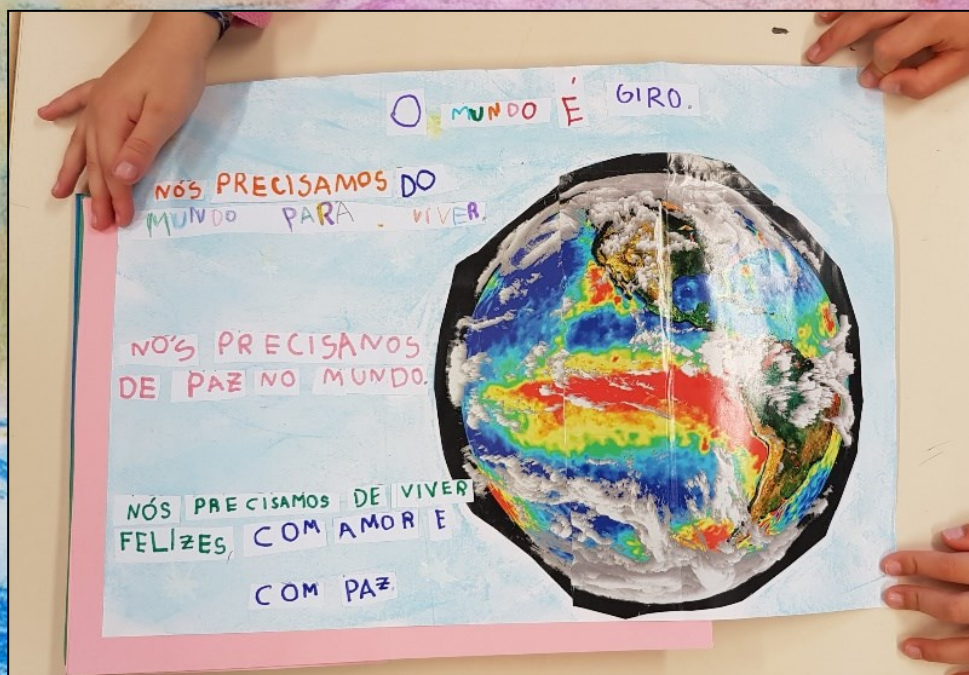 O MUNDO É GIRO.
NÓS PRECISAMOS DO
MUNDO PARA VIVER.
NÓS PRECISANOS
DE PAZ NO MUNDO.
NÓS PRECISAMOS DE VIVER
FELIZES COM AMOR E
COM PAZ